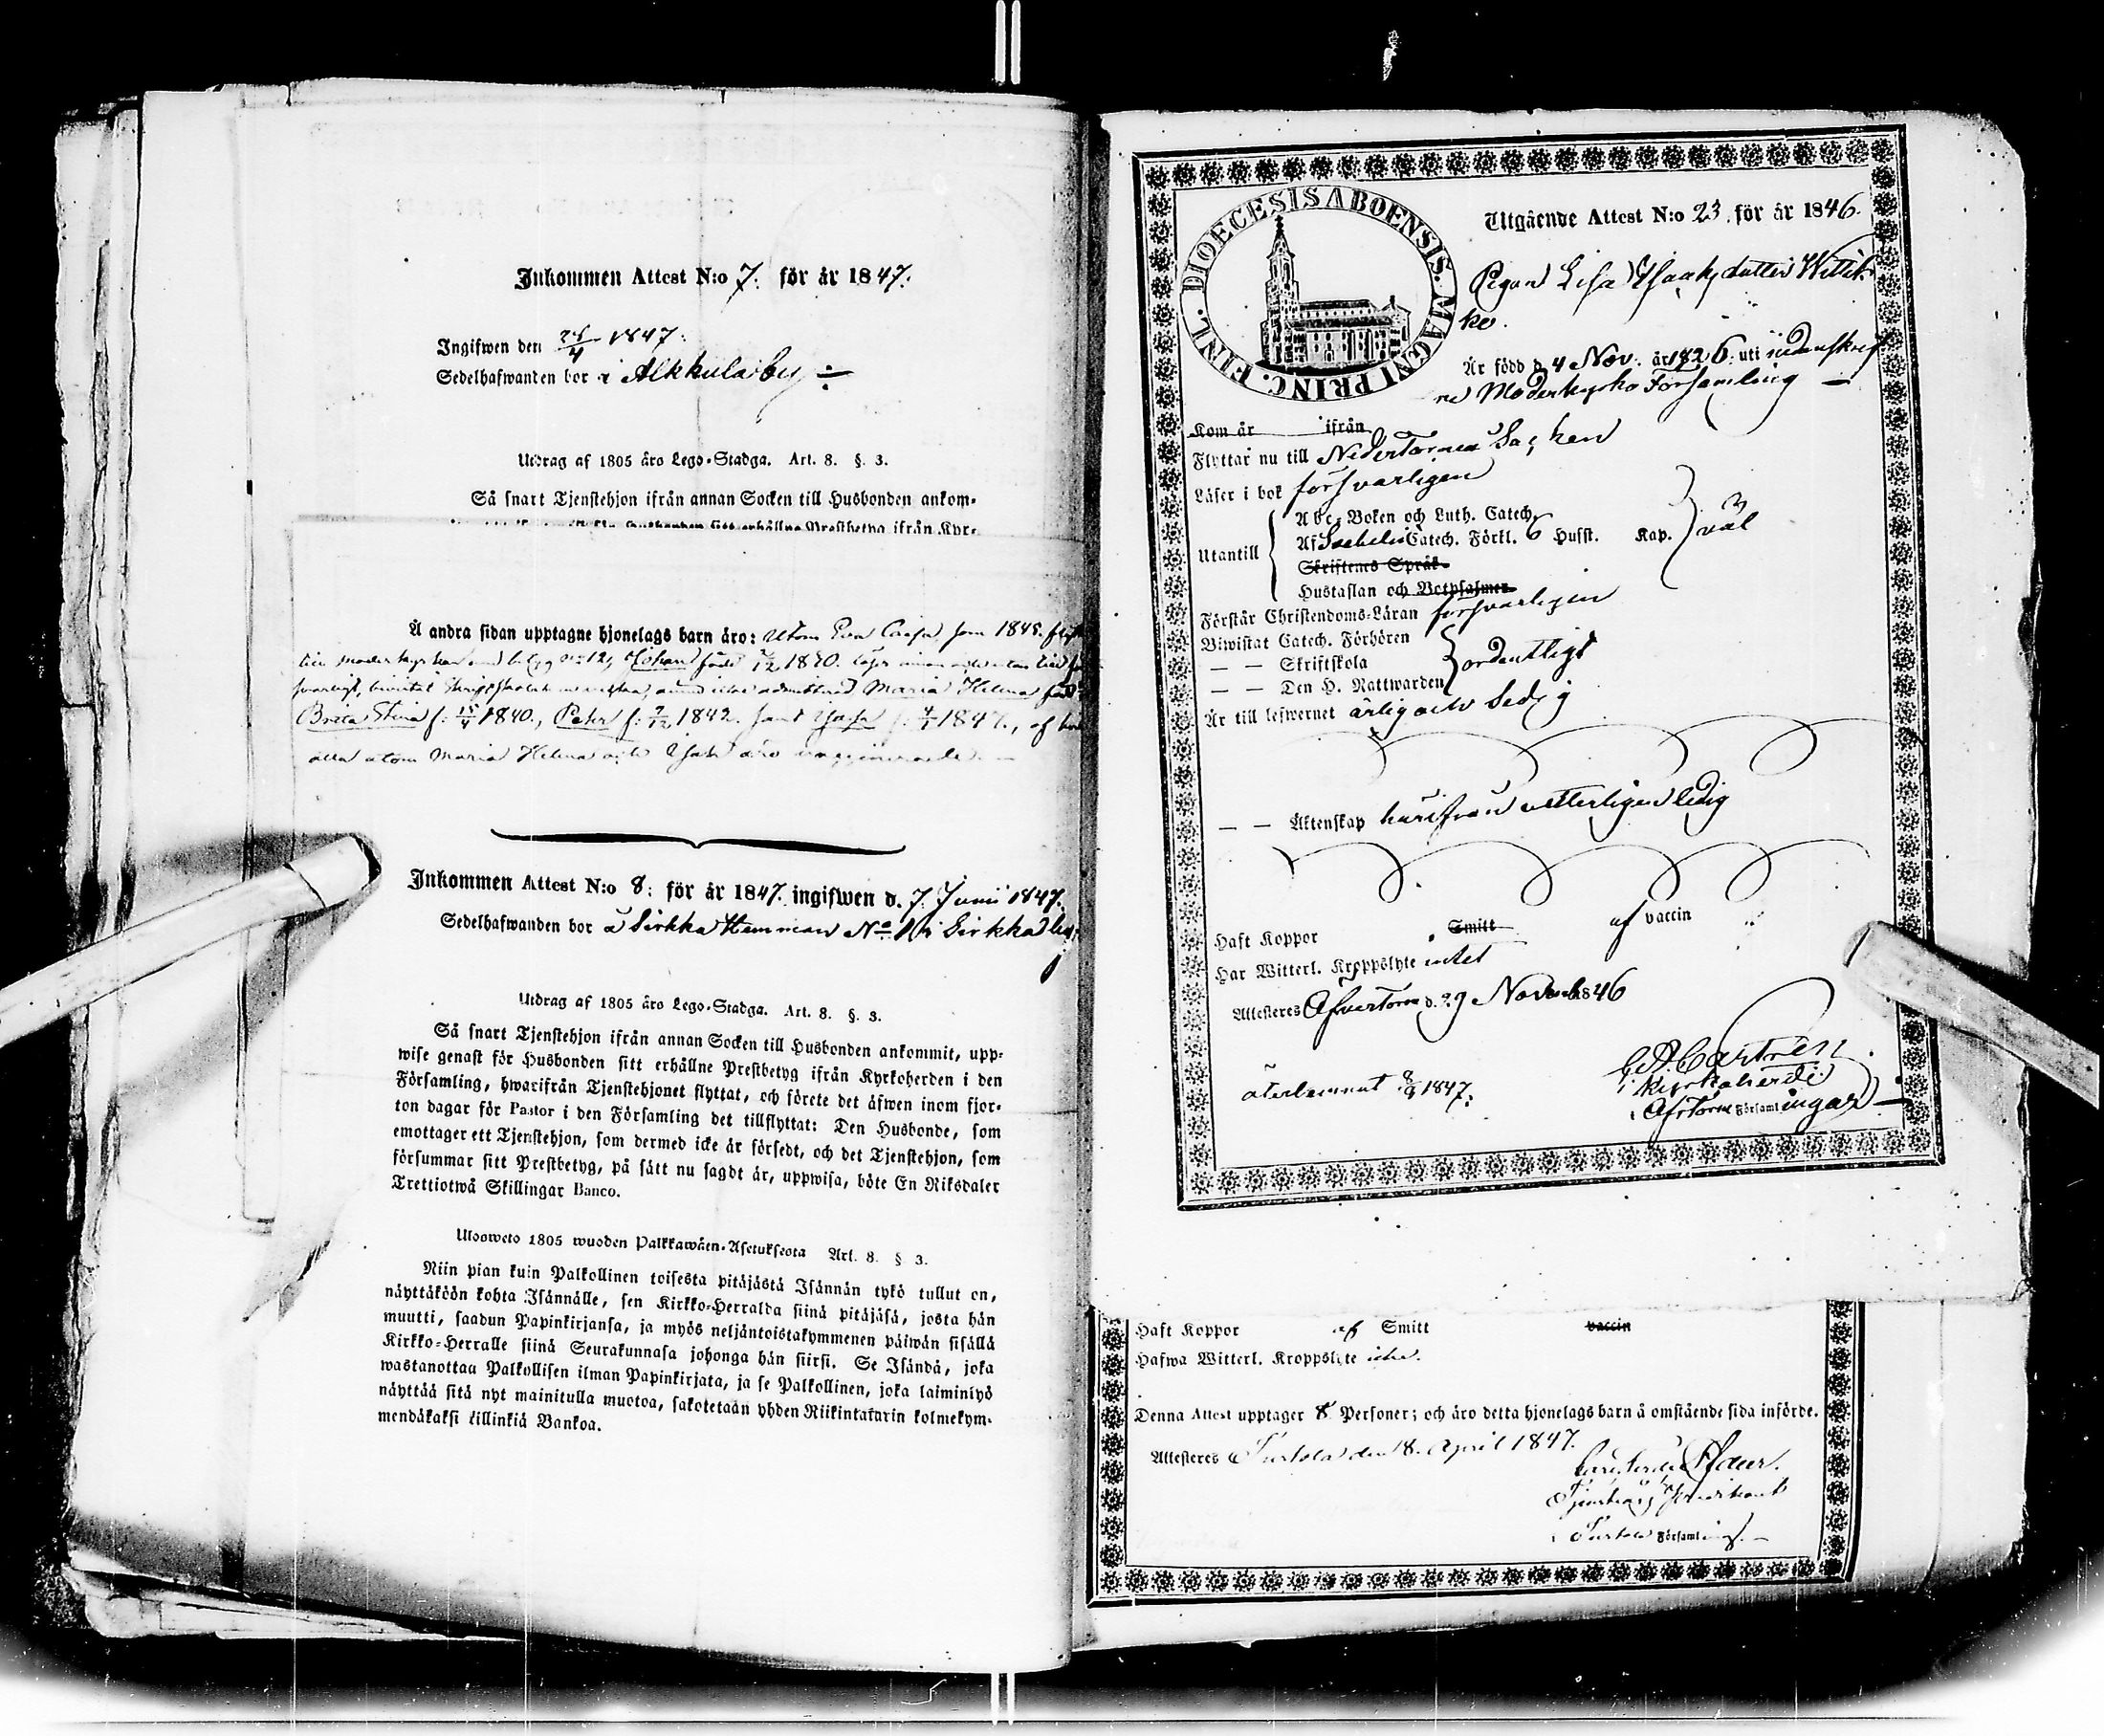 Inkommen Attest N:o 7. för år 1847.
Ingifwen den 24/4 1847.
Sedelhafwanden bor i Alkkula by
Utdrag af 1805 års Lego-Stadga. Art. 8. §. 3.
Så snart Tjenstehjon ifrån annan Socken till Husbonden ankom-
sitt erhållne Prestbetyg ifrån Kyr-
Å andra sidan upptagne hjonelags barn äro: Utom Eva Caisa som 1845
till moderkyrkan N:o 12, Johan född 1830. läser innan och utan till
Maria Helena född
Brita Stina f. 15/4 1840., Peter f. 1842. samt Isak f. 1847., af
alla utom Maria Helena och Isak äro vaccinerade.
Inkommen Attest N:o 8: för år 1847. ingifwen d. 7. Junii 1847.
Sedelhafwanden bor å Sirkka Hemman N:o 1 i Sirkka by
Utdrag af 1805 års Lego-Stadga. Art. 8. §. 3.
Så snart Tjenstehjon ifrån annan Socken till Husbonden ankommit, upp-
wise genast för Husbonden sitt erhållne Prestbetyg ifrån Kyrkoherden i den
Församling, hwarifrån Tjenstehjonet flyttat, och förete det äfwen inom fjor-
ton dagar för Pastor i den Församling det tillflyttat: Den Husbonde, som
emottager ett Tjenstehjon, som dermed icke är försedt, och det Tjenstehjon, som
försummar sitt Prestbetyg, på sätt nu sagdt är, uppwisa, böte En Riksdaler
Trettiotwå Skillingar Banco.
Ulosweto 1805 wuoden Palkkawäen-Asetuksesta Art. 8. § 3.
Niin pian kuin Palkollinen toisesta pitäjästä Isännän tykö tullut on,
näyttäköön kohta Isännälle, sen Kirkko-Herralda siinä pitäjäsä, josta hän
muutti, saadun Papinkirjansa, ja myös neljäntoistakymmenen päiwän sisällä
Kirkko-Herralle siinä Seurakunnasa johonga hän siirsi. Se Isändä, joka
wastanottaa Palkollisen ilman Papinkirjata, ja se Palkollinen, joka laiminlyö
näyttää sitä nyt mainitulla muotoa, sakotetaan yhden Riikintalarin kolmekym-
mendäkaksi killinkiä Bankoa.
DIOECESIS ABOENSIS. MAGNI PRINC. FINL.
Utgående Attest N:o 23. för år 1846.
Pigan Lisa Isaksdotter Wittik-
ko.
Är född d. 4 Nov. år 1826. uti nedanskref-
ne Moderkyrko Församling
Kom år ifrån
Flyttar nu till NederTornea Socken
Läser i bok försvarligen
Utantill
Abc-Boken och Luth. Catech.
Af Svebelii Catech. Förkl. 6 Husst. Kap.
väl
Skriftenes Språk.
Hustaflan och Botpsalmer
Förstår Christendoms-Läran försvarligen
Biwistat Catech. Förhören
— — Skriftskola
ordentligt
— — Den H. Nattwarden
Är till lefwernet ärlig och sedig
— — Äktenskap härifrån vetterligen ledig
Haft Koppor Smitt af vaccin
Har Witterl. Kroppslyte intet
Attesteres ÖfverTorne d. 29 Novemb. 1846
C. A. Castrén
Kyrkoherde
i ÖfTorne Församlingar
återlemnat 1847.
Haft Koppor af Smitt vaccin
Hafwa Witterl. Kroppslyte icke.
Denna Attest upptager 8 Personer; och äro detta hjonelags barn å omstående sida införde.
Attesteres Turtola den 18. April 1847.
i Turtola Församling.